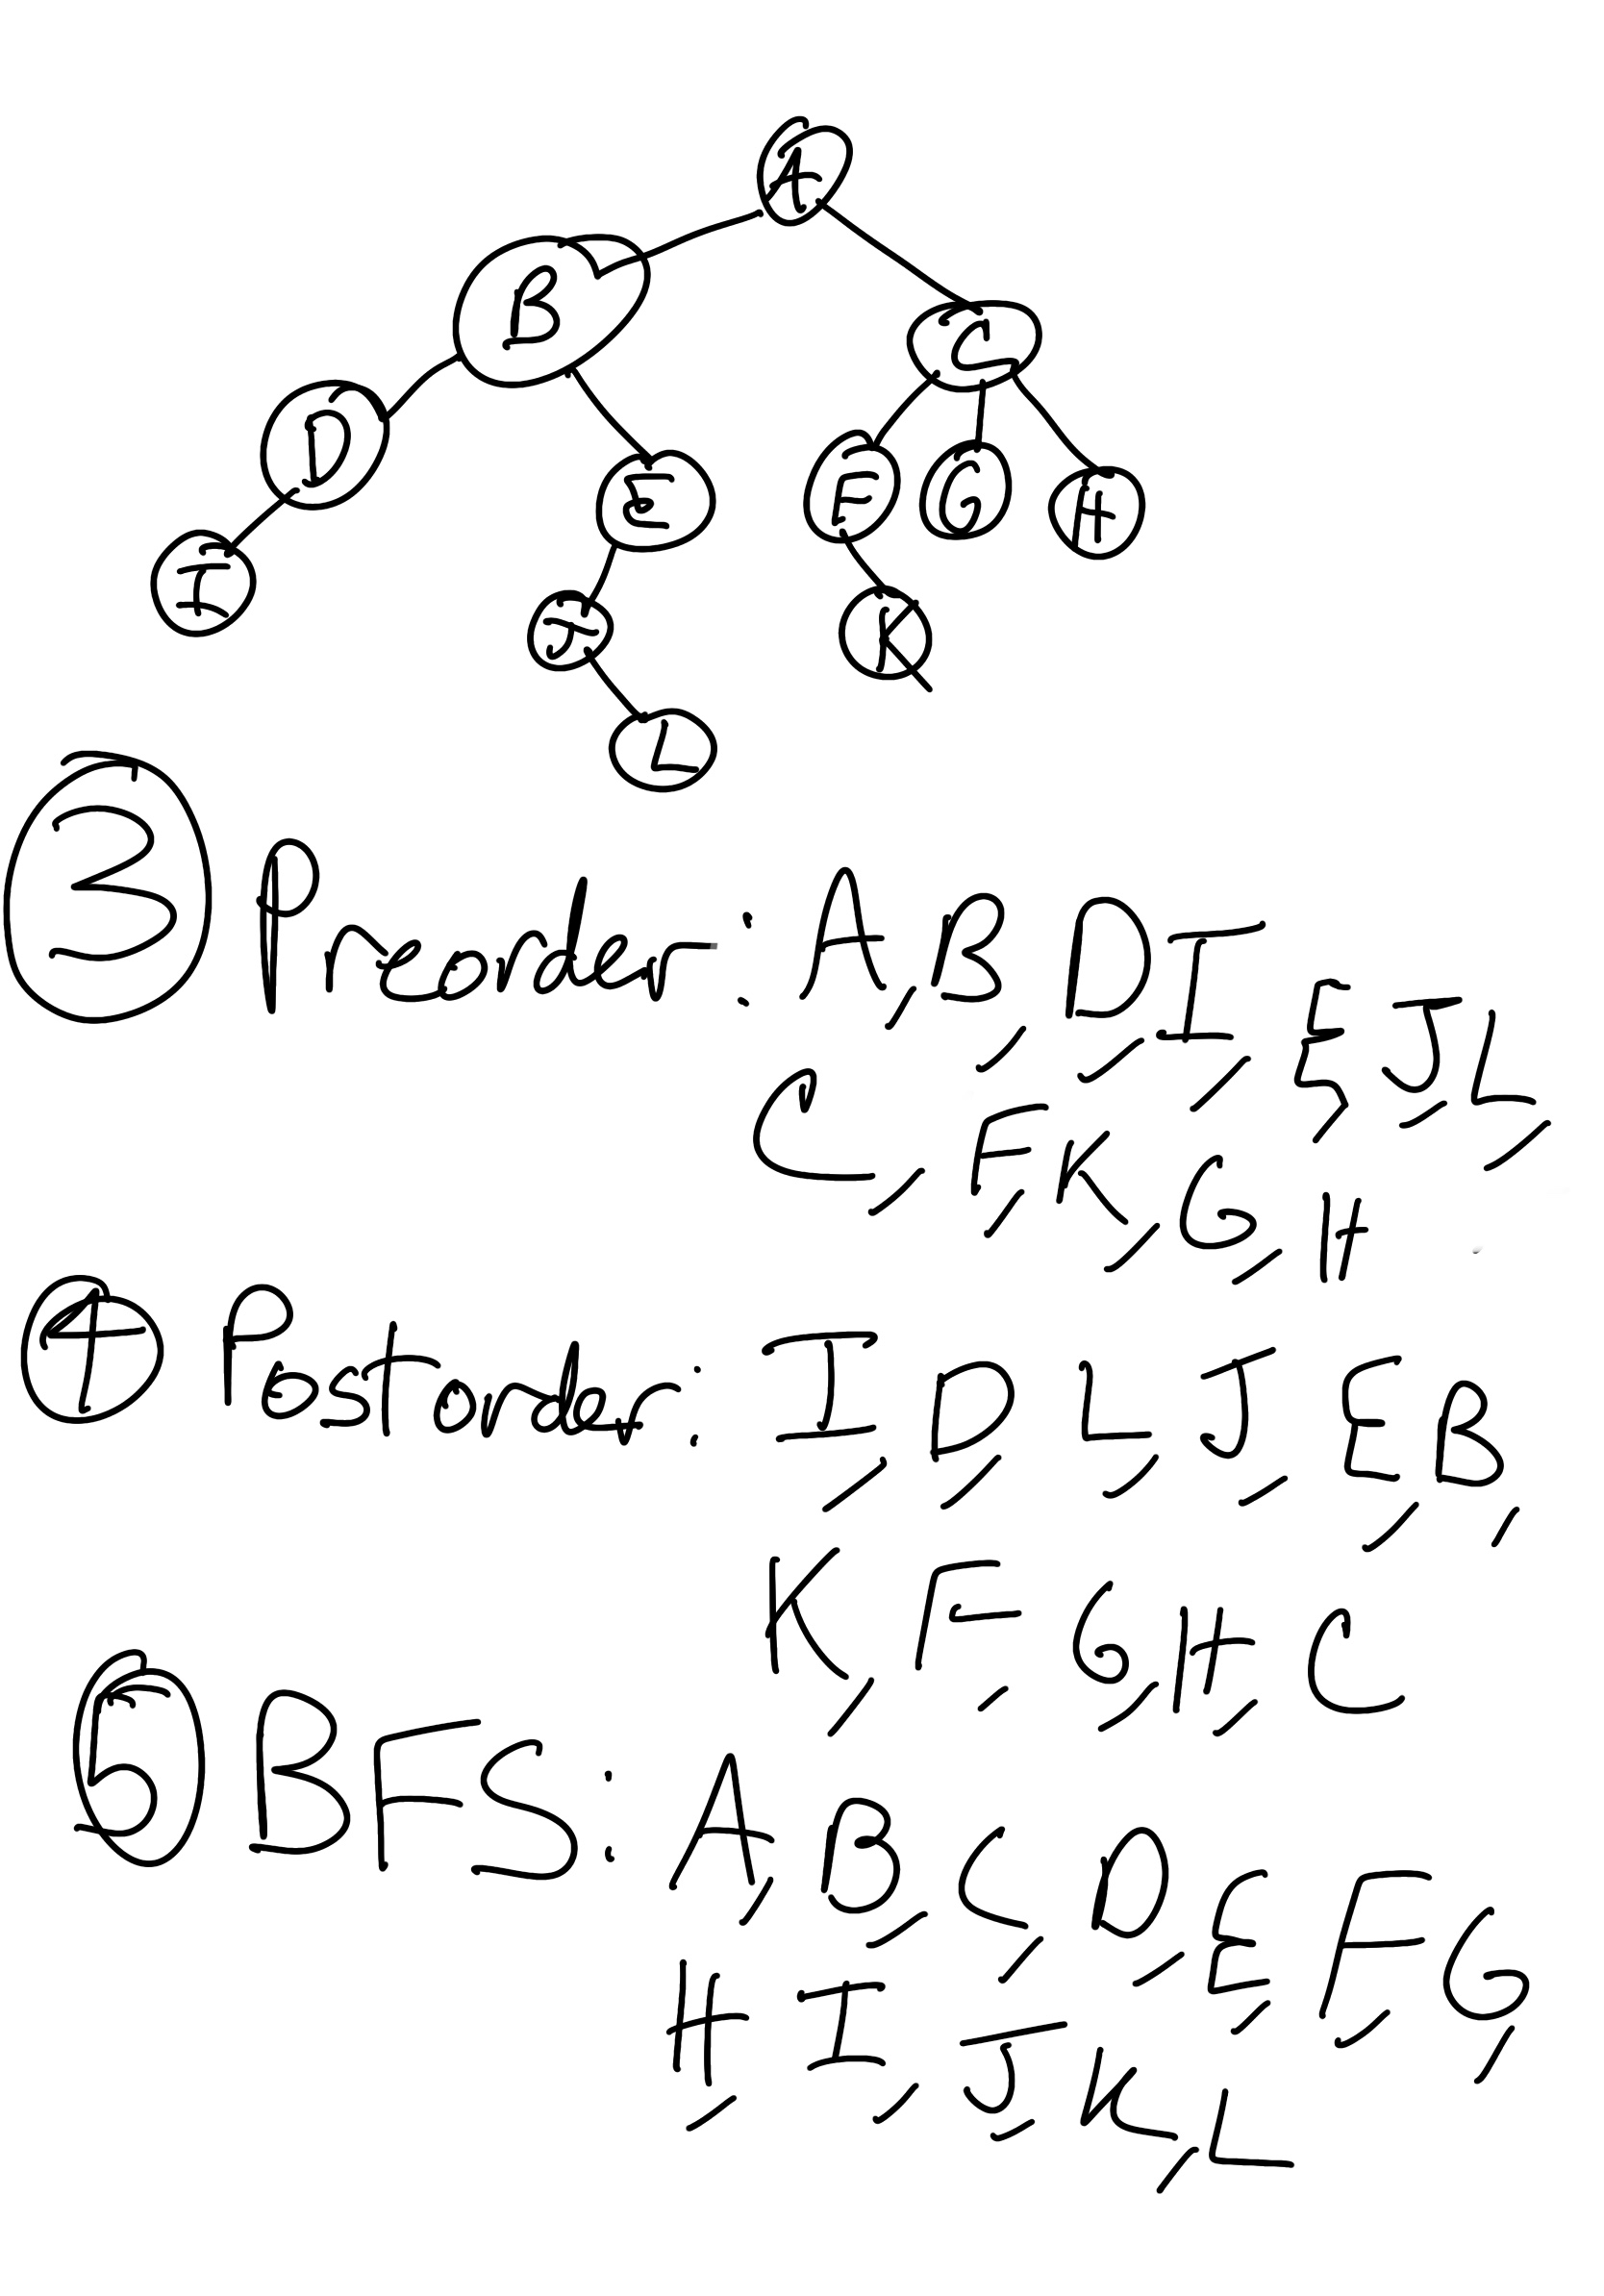 A
B
C
D
E
F
G
H
I
J
K
L
3 Preorder: A, B, D, I, E, J, L,
C, F, K, G, H
4 Postorder: I, D, L, J, E, B,
K, F, G, H, C
5 BFS: A, B, C, D, E, F, G,
H, I, J, K, L